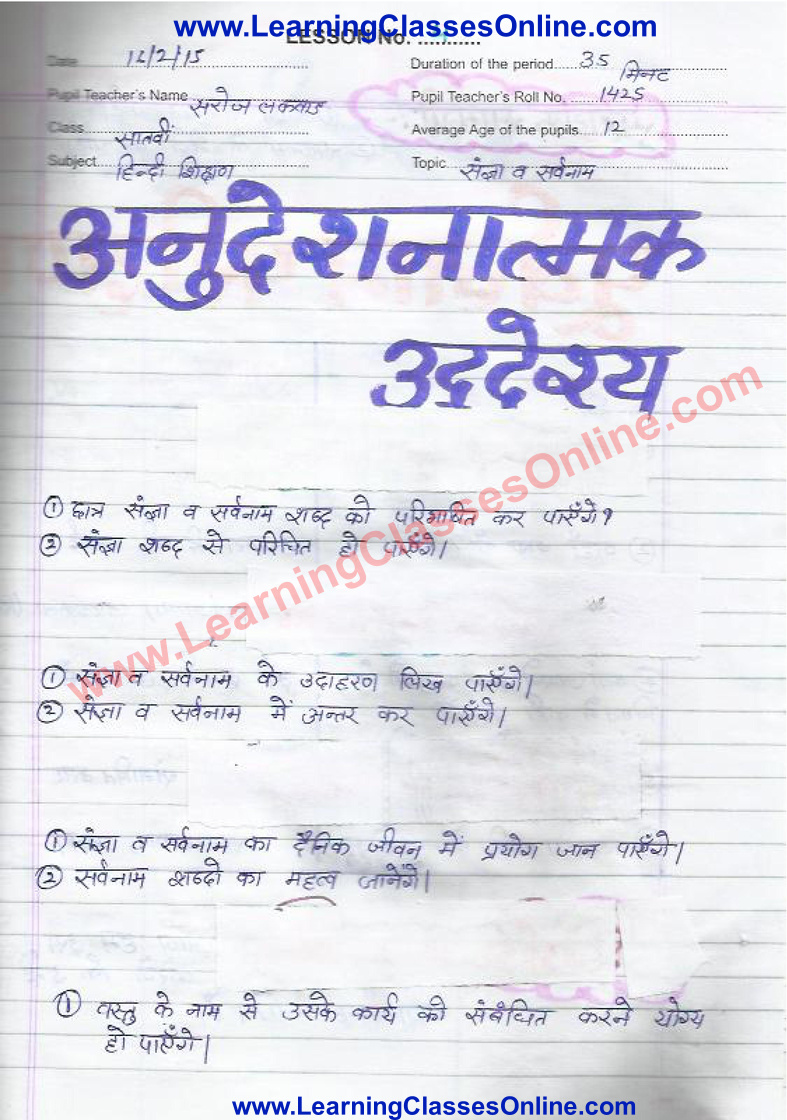 www.LearningClassesOnline.com
LESSON No. ...........
Date 12/2/15 Duration of the period 35 मिनट
Pupil Teacher's Name सरोज Pupil Teacher's Roll No. 1425
Class सातवीं Average Age of the pupils 12
Subject हिन्दी शिक्षण Topic संज्ञा व सर्वनाम
अनुदेशनात्मक
उद्देश्य
www.LearningClassesOnline.com
① छात्र संज्ञा व सर्वनाम शब्द को परिभाषित कर पाएँगे?
② संज्ञा शब्द से परिचित हो पाएँगे।
① संज्ञा व सर्वनाम के उदाहरण लिख पाएँगे।
② संज्ञा व सर्वनाम में अन्तर कर पाएँगे।
① संज्ञा व सर्वनाम का दैनिक जीवन में प्रयोग जान पाएँगे।
② सर्वनाम शब्दो का महत्व जानेंगे।
① वस्तु के नाम से उसके कार्य को संबंधित करने योग्य
हो पाएँगे।
www.LearningClassesOnline.com